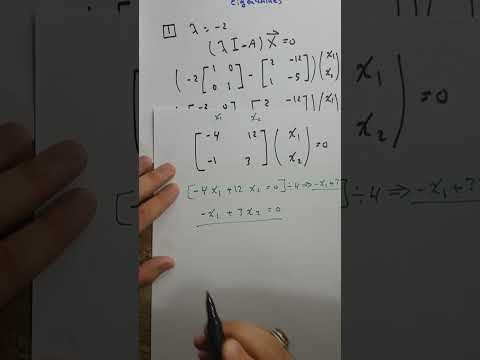 Eigenvalues
1 λ = -2
(λI-A)X⃗=0
(-2[1 0 0 1] - [2 -12 1 -5])(x₁
[-2 0] [2 -12](x₁
x₁ x₂
[-4 12 -1 3](x₁ x₂)=0
x₁ x₂)=0
[-4x₁+12x₂=0]÷4⇒-x₁+3
]÷4⇒-x₁+3
-x₁+3x₂=0